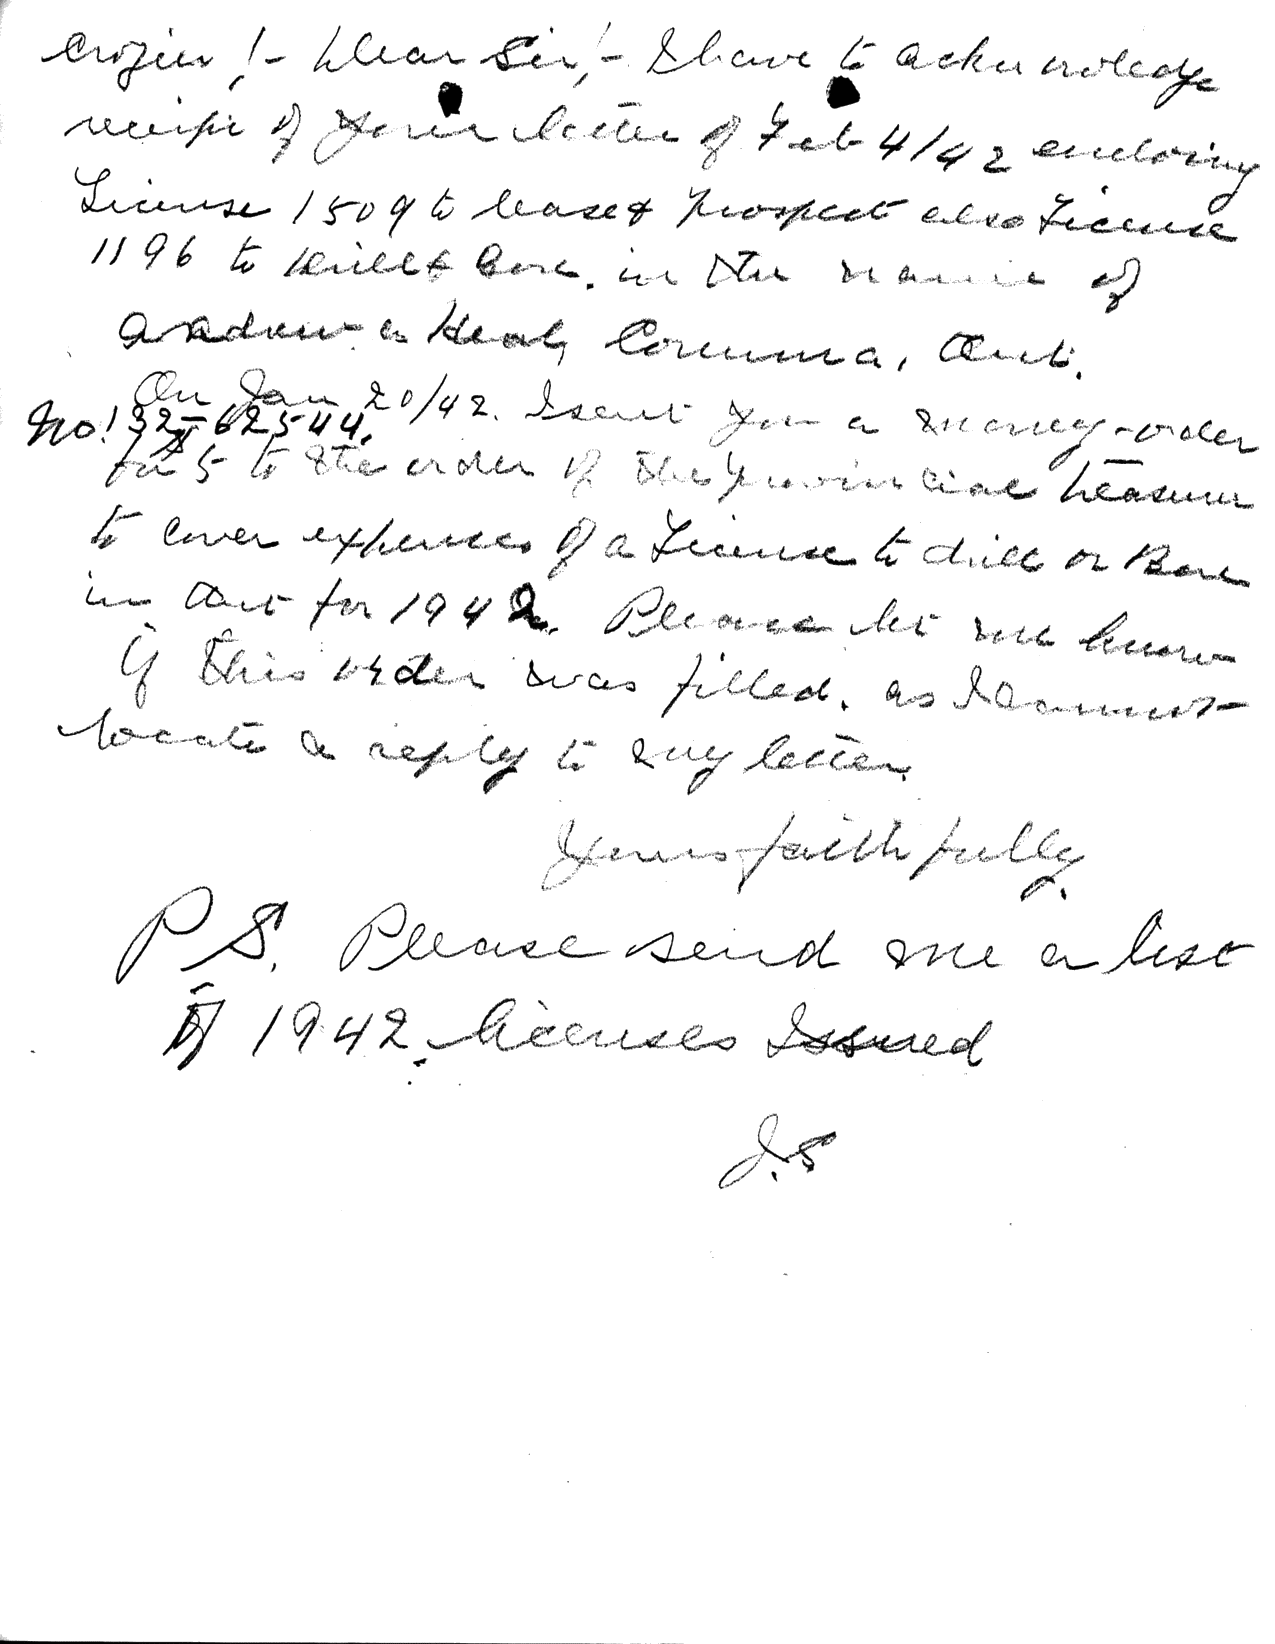 Crozier!- Dear Sir!- I have to acknowledge
receipt of your letter of Feb 4/42 enclosing
License 1509 to lease & prospect also License
1196 to Drill & Bore. in the name of
Andrew Heal, Corunna, Ont.
On Jan 20/42. I sent you a money-order
No! 32-62544,
for $5 to the order of the Provincial Treasurer
to cover expenses of a License to drill or Bore
in Ont for 1942. Please let me know
if this order was filled. as I cannot
locate a reply to my letter.
Yours faithfully.
P.S. Please send me a list
of 1942. licenses Issued
J.S